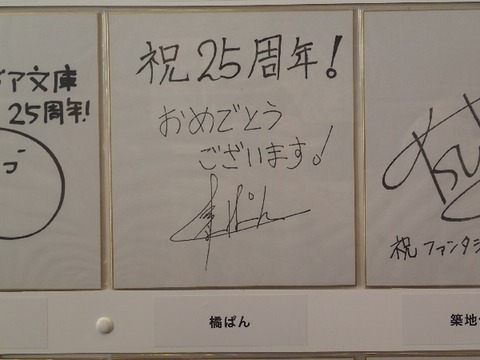 ジア文庫
25周年!
祝25周年!
おめでとう
ございます!
橘ぱん
祝 ファンタジ
橘ぱん
築地